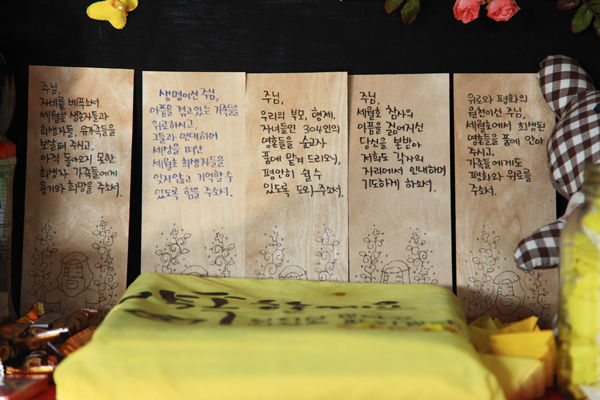 주님,
자비를 베푸소서.
세월호 생존자들과
희생자들, 유가족들을
보살펴 주시고,
아직 돌아오지 못한
희생자 가족들에게
용기와 희망을 주소서.
생명이신 주님,
아픔을 겪고있는 가족들을
위로하시고,
그들과 연대하며
세상을 떠난
세월호 희생자들을
잊지않고 기억할 수
있도록 힘을 주소서.
주님,
우리의 부모, 형제,
자녀들인 304인의
영혼들을
품에 맡겨 드리오니,
평안히 쉴 수
있도록 도와주소서.
주님,
세월호 참사의
아픔을 짊어지신
당신을 본받아
저희도 각자의
자리에서 인내하며
기도하게 하소서.
위로와 평화의
원천이신 주님,
세월호에서 희생된
영혼들을 품에 안아
주시고,
가족들에게도
평화와 위로를
주소서.